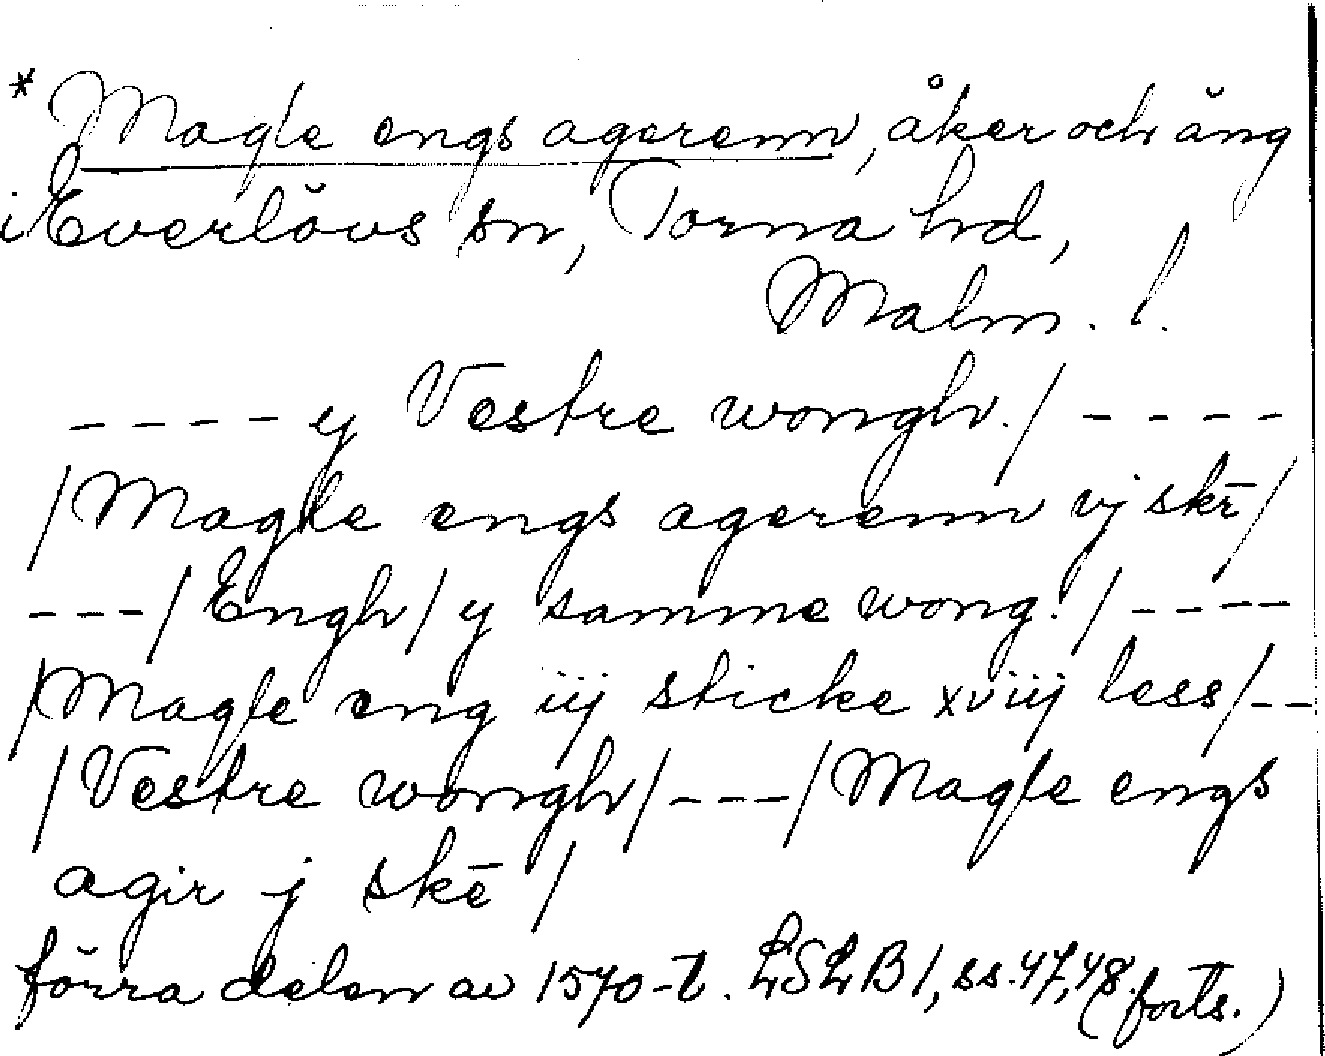 * Magle engs agerenn, åker och äng
i Everlövs sn, Torna hd,
Malm. l.
---- y Vestre wongh./ ----
/Magle engs agerenn vj skr̄/
---/Engh/ y samme wong./ ----
/Magle eng iij sticke xviij less/--
/Vestre wongh/---/Magle engs
agir j skē /
förra delen av 1570-t. LSLB 1, ss. 47, 48. (forts.)